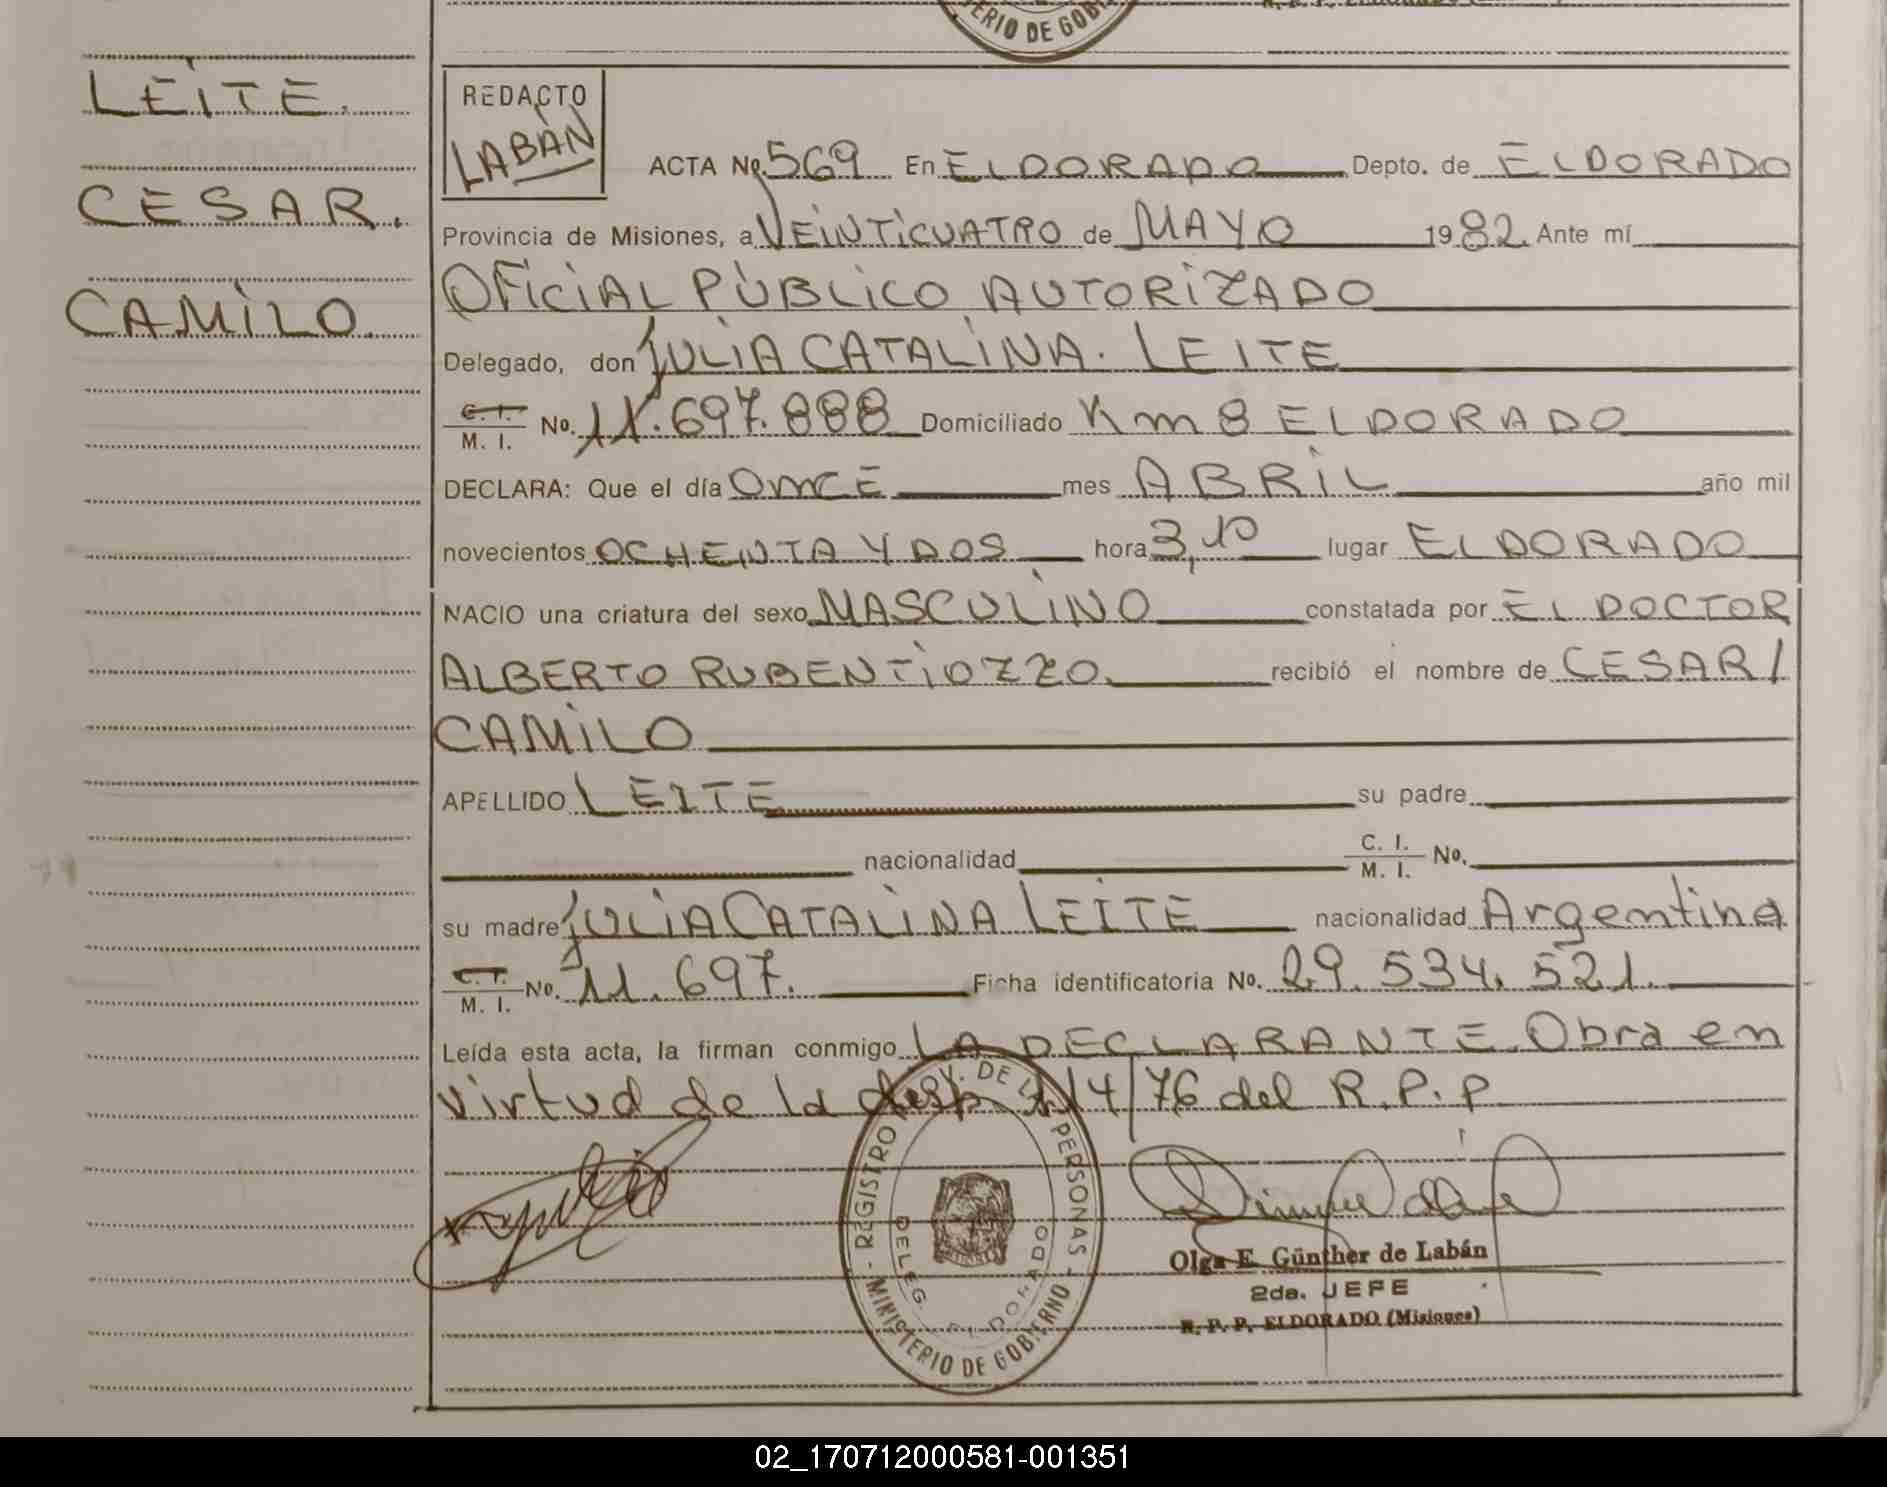 ERIO DE GOBI
LEITE.
CESAR.
CAMILO.
REDACTO
LABÁN
ACTA No. 569 En ELDORADO Depto. de ELDORADO
Provincia de Misiones, a VEINTICUATRO de MAYO 1982. Ante mí
OFICIAL PÚBLICO AUTORIZADO
Delegado, don JULIA CATALINA. LEITE
C. I. / M. I. No. 11.697.888 Domiciliado Km 8 ELDORADO
DECLARA: Que el día ONCE mes ABRIL año mil
novecientos OCHENTA Y DOS hora 3,10 lugar ELDORADO
NACIO una criatura del sexo MASCULINO constatada por EL DOCTOR
ALBERTO RUBEN TIOZZO. recibió el nombre de CESAR/
CAMILO
APELLIDO LEITE su padre
nacionalidad C. I. / M. I. No.
su madre JULIA CATALINA LEITE nacionalidad Argentina
C. I. / M. I. No. 11.697. Ficha identificatoria No. 29.534.521.
Leída esta acta, la firman conmigo LA DECLARANTE. Obra en
virtud de la disp 14/76 del R.P.P
REGISTRO PROV. DE LAS PERSONAS - MINISTERIO DE GOBIERNO -
DELEG. ELDORADO
Olga E. Günther de Labán
2da. JEFE
R. P. P. ELDORADO (Misiones)
02_170712000581-001351